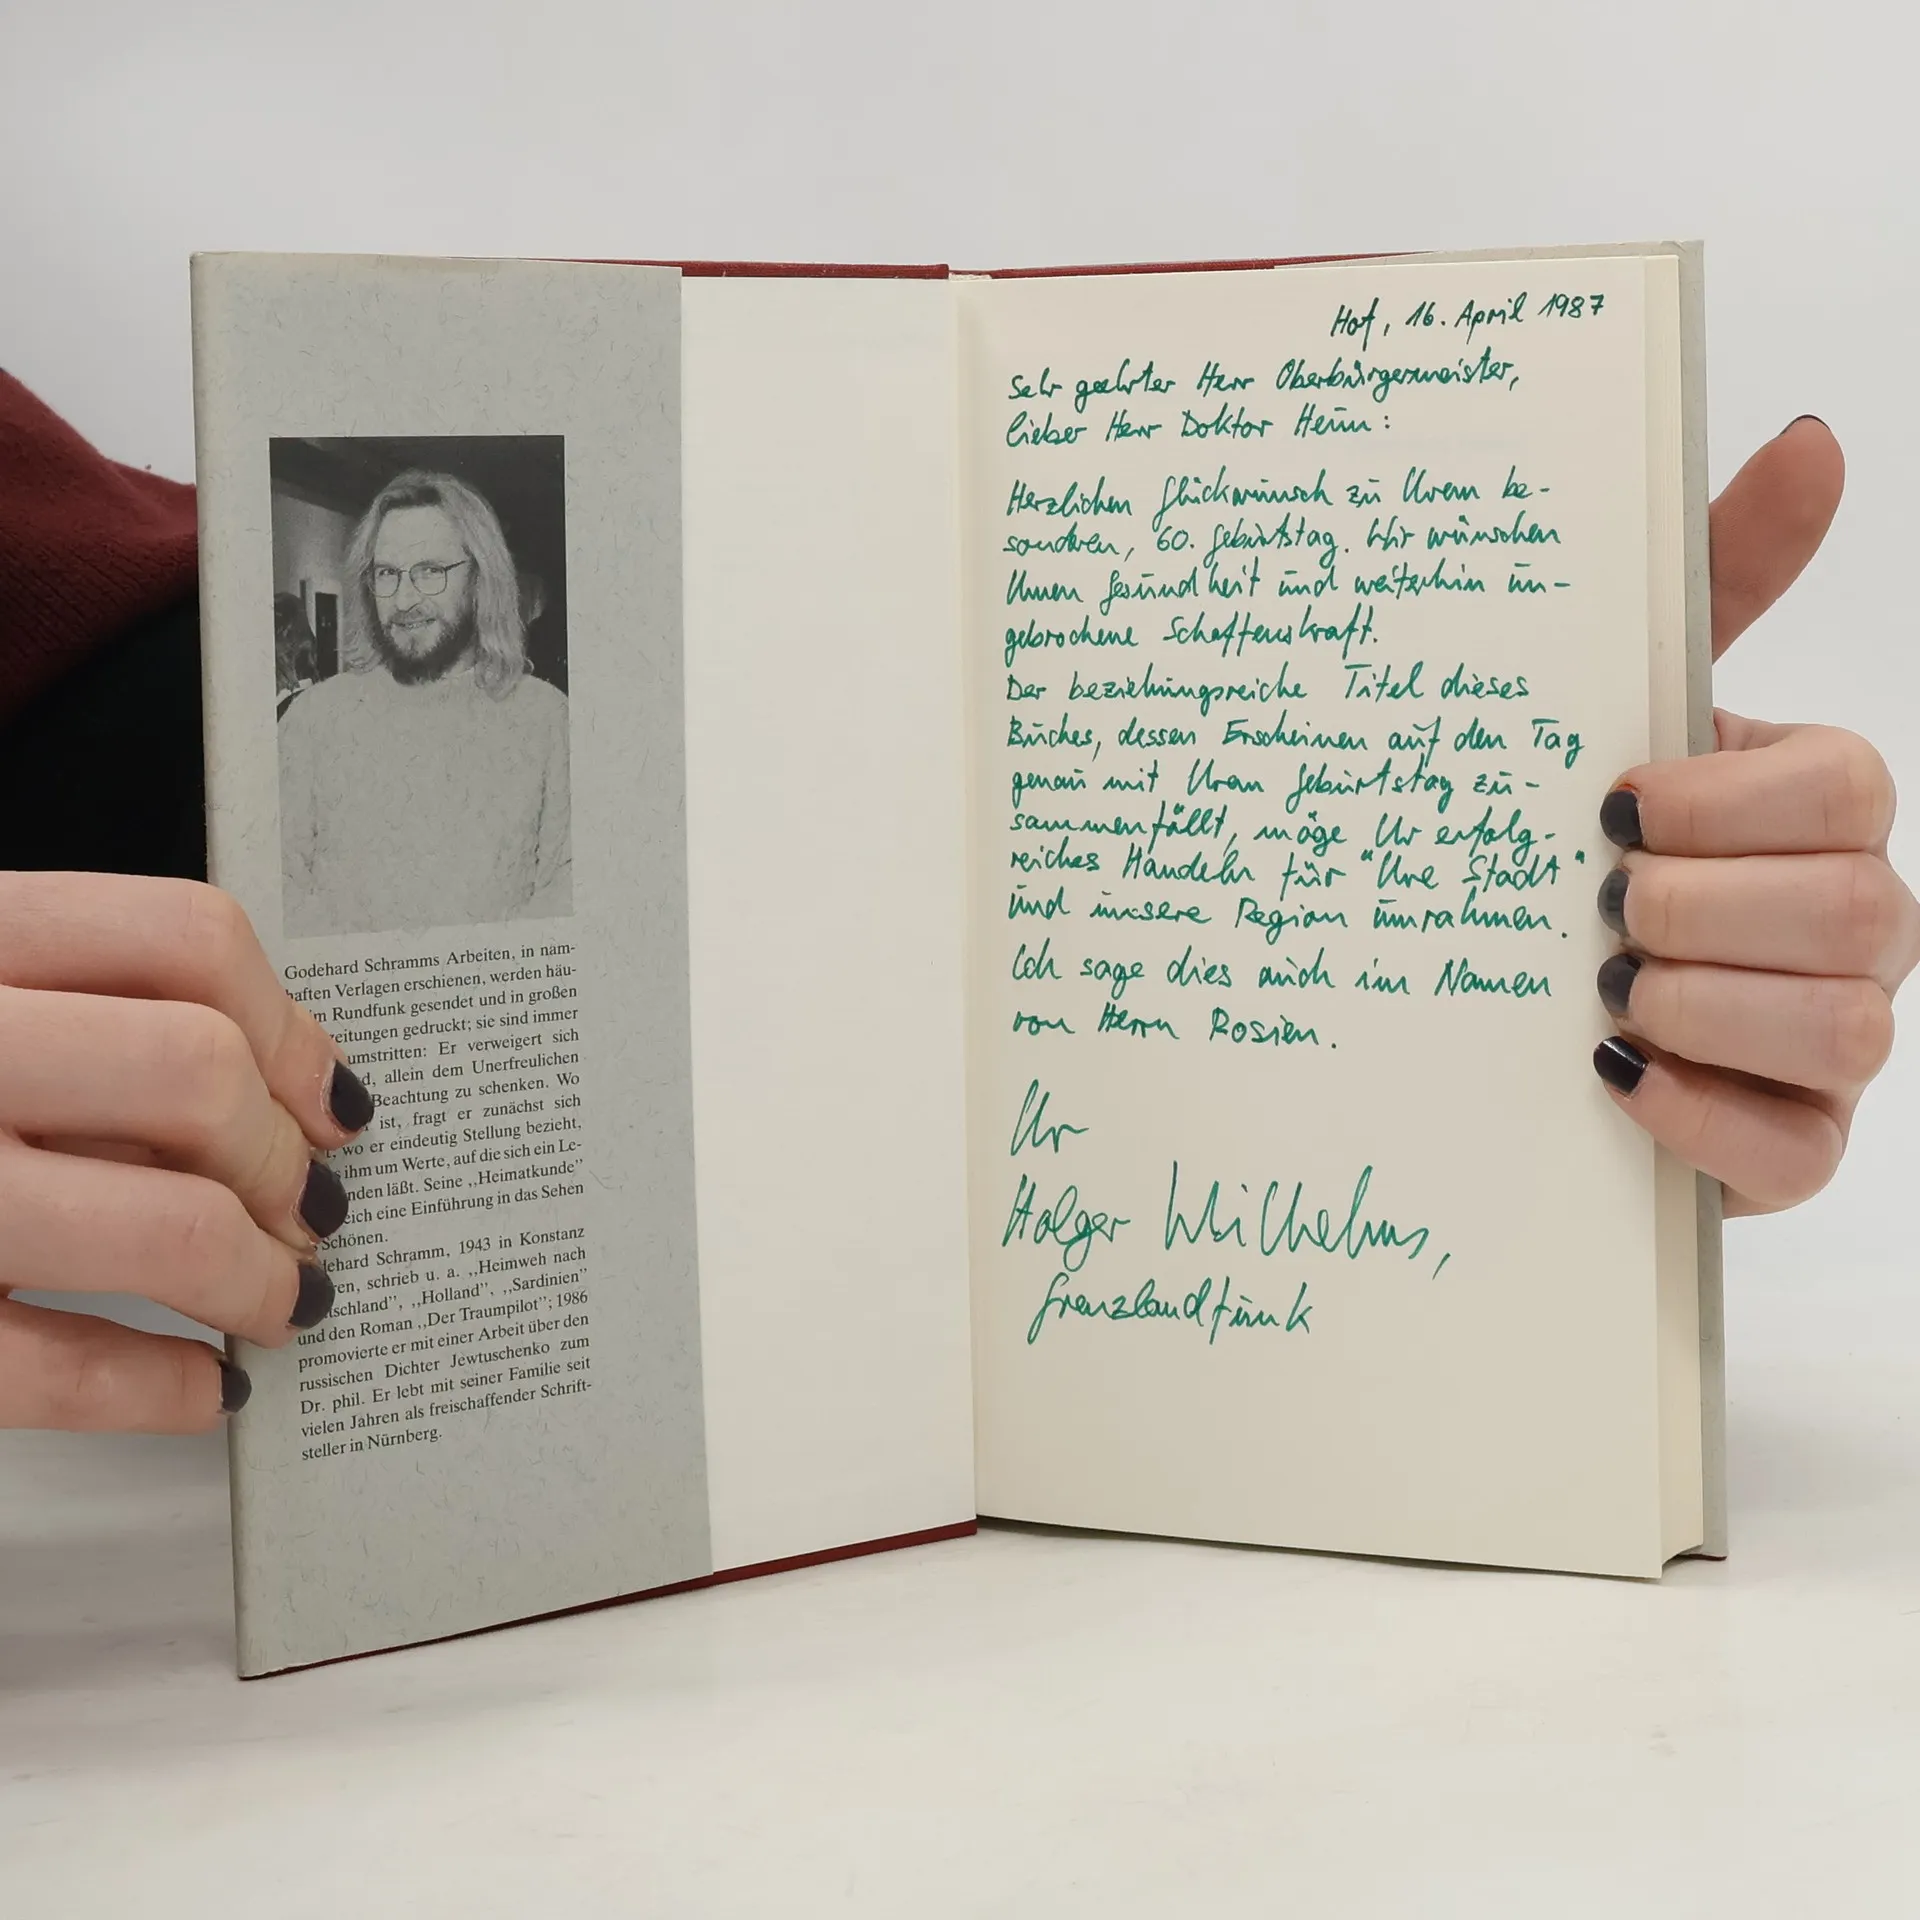 Godehard Schramms Arbeiten, in nam-
haften Verlagen erschienen, werden häu-
im Rundfunk gesendet und in großen
eitungen gedruckt; sie sind immer
umstritten: Er verweigert sich
d, allein dem Unerfreulichen
Beachtung zu schenken. Wo
ist, fragt er zunächst sich
t, wo er eindeutig Stellung bezieht,
s ihm um Werte, auf die sich ein Le-
nden läßt. Seine „Heimatkunde”
eich eine Einführung in das Sehen
Schönen.
ehard Schramm, 1943 in Konstanz
ren, schrieb u. a. „Heimweh nach
tschland”, „Holland”, „Sardinien”
und den Roman „Der Traumpilot”; 1986
promovierte er mit einer Arbeit über den
russischen Dichter Jewtuschenko zum
Dr. phil. Er lebt mit seiner Familie seit
vielen Jahren als freischaffender Schrift-
steller in Nürnberg.
Hof, 16. April 1987
Sehr geehrter Herr Oberbürgermeister,
lieber Herr Doktor Heun:
Herzlichen Glückwunsch zu Ihrem be-
sonderen, 60. Geburtstag. Wir wünschen
Ihnen Gesundheit und weiterhin un-
gebrochene Schaffenskraft.
Der beziehungsreiche Titel dieses
Buches, dessen Erscheinen auf den Tag
genau mit Ihrem Geburtstag zu-
sammenfällt, möge Ihr erfolg-
reiches Handeln für "Ihre Stadt"
und unsere Region umrahmen.
Ich sage dies auch im Namen
von Herrn Rosien.
Ihr
Holger Wilhelms,
Grenzlandfunk